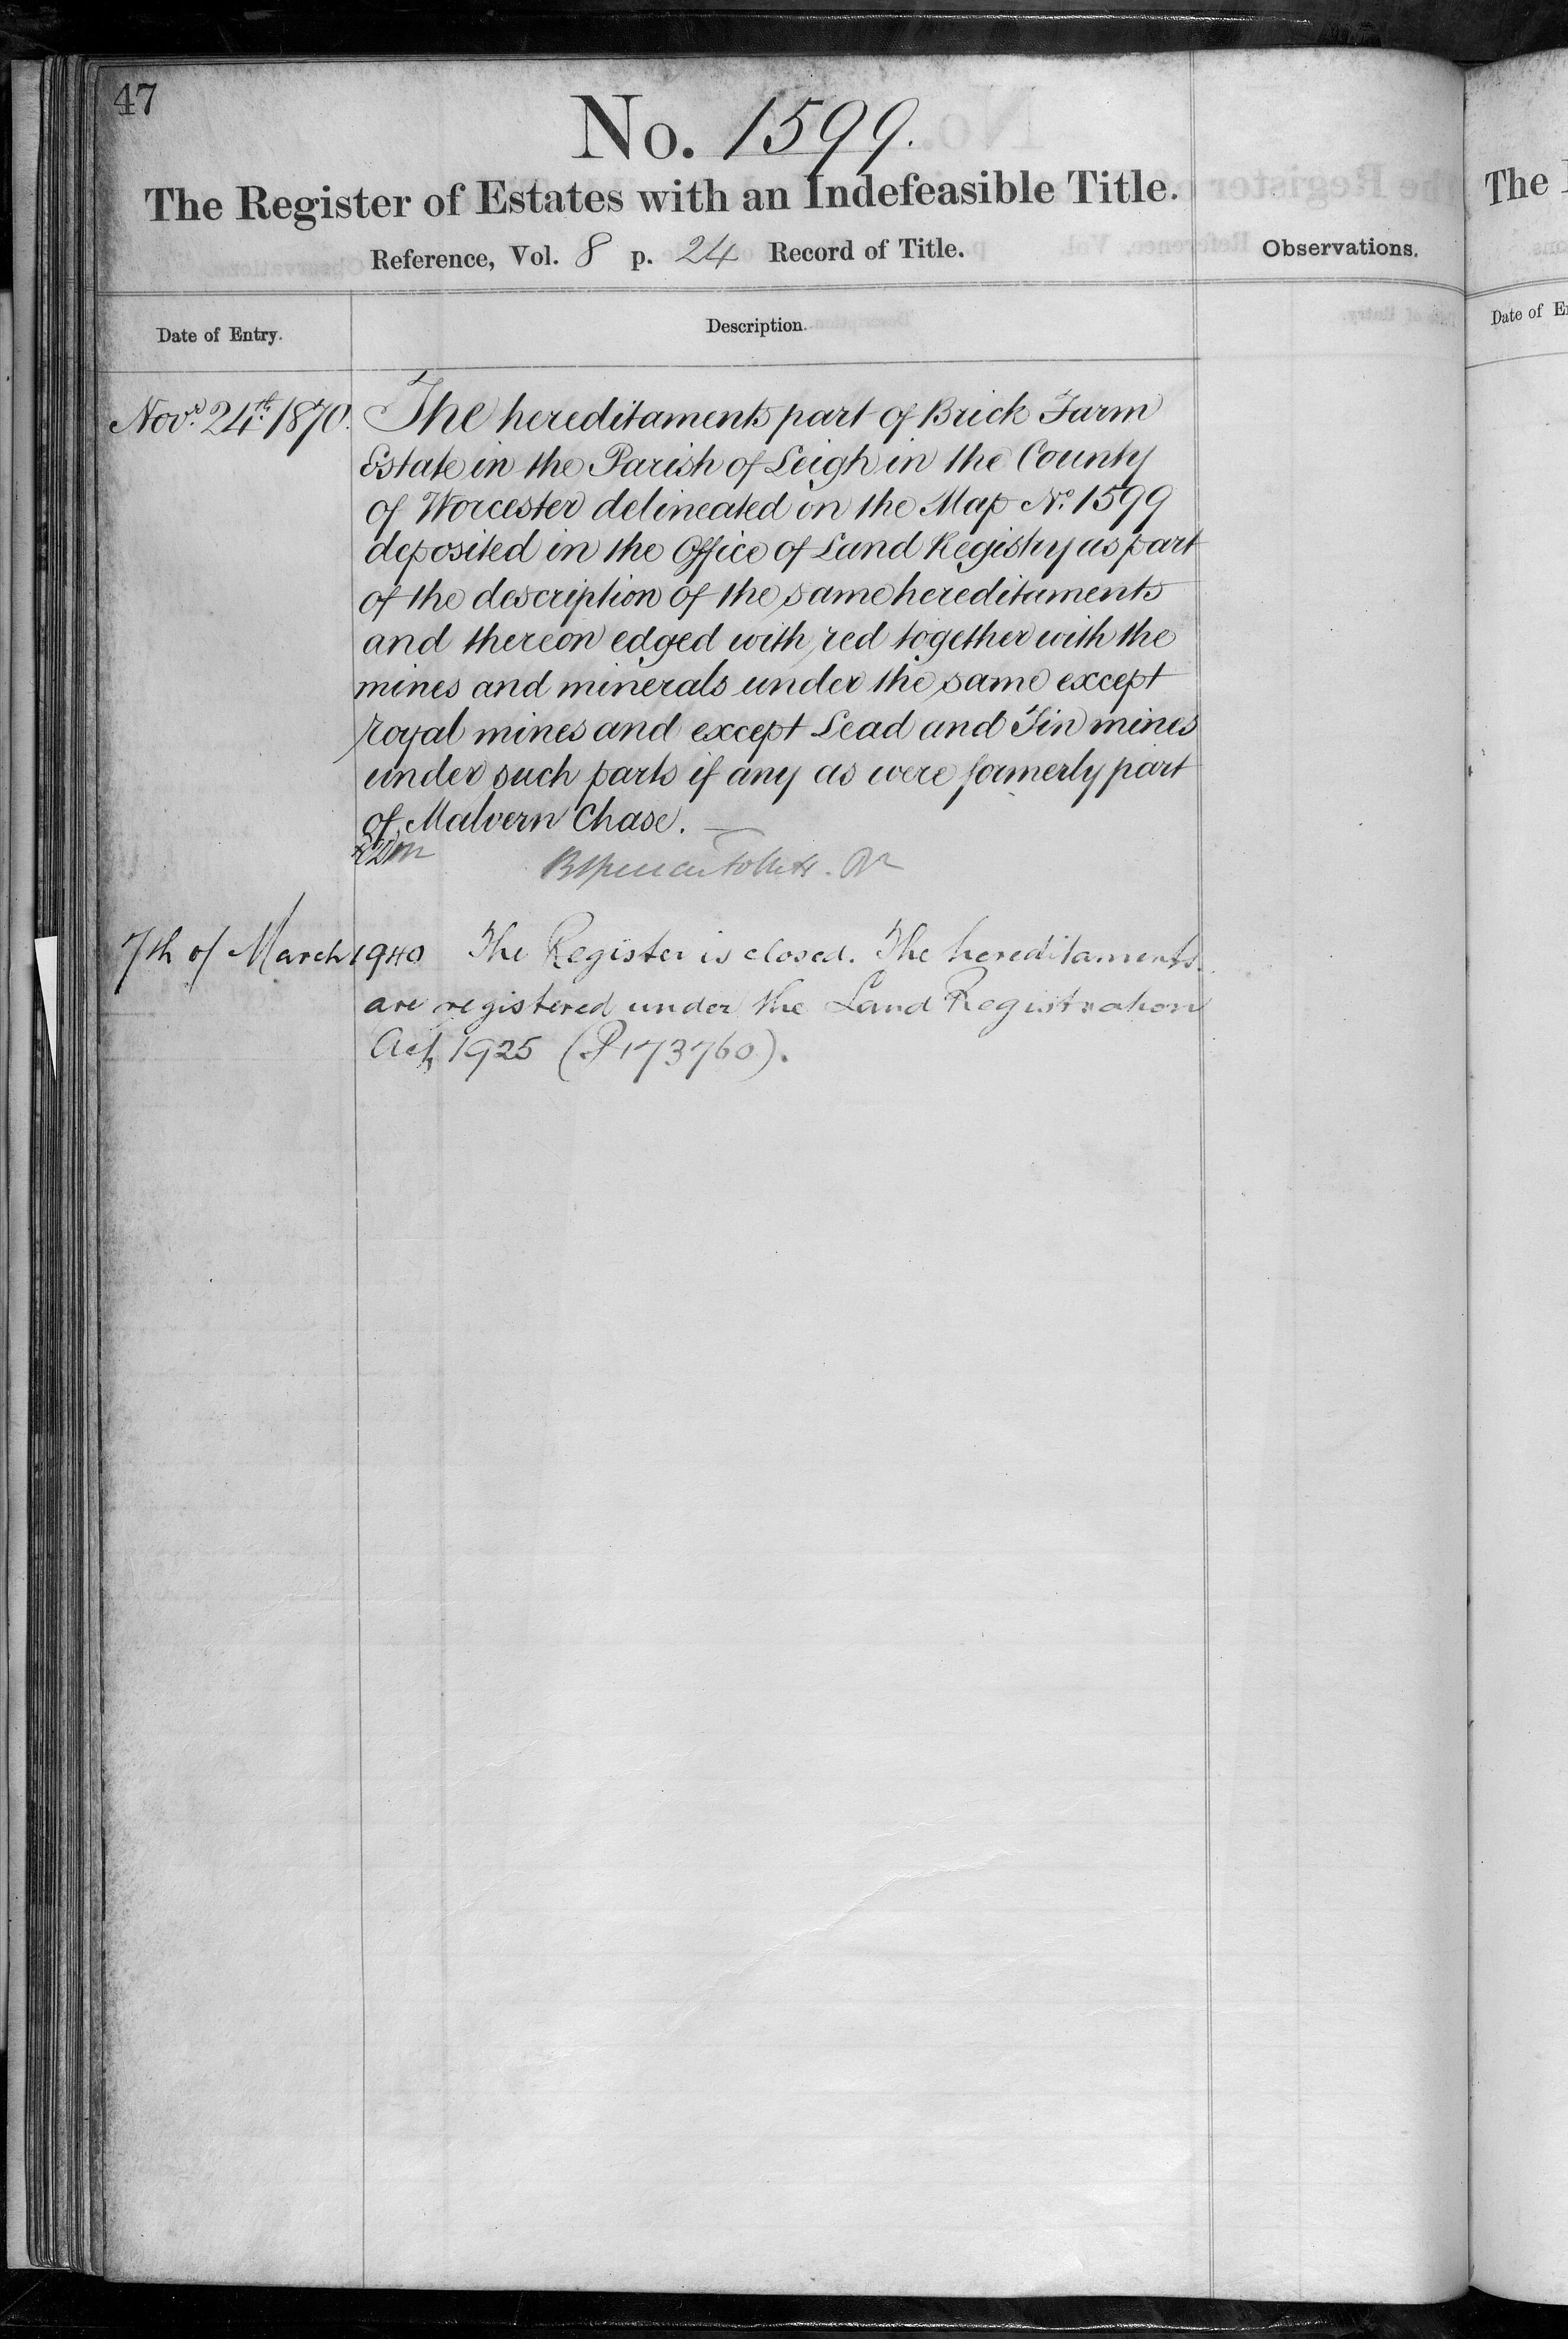 47
No. 1599.
The Register of Estates with an Indefeasible Title.
Reference, Vol. 8 p. 24 Record of Title.
Observations.
Date of Entry.
Description.
Novr. 24th. 1870. The hereditaments part of Brick Farm
Estate in the Parish of Leigh in the County
of Worcester delineated on the Map No. 1599
deposited in the Office of Land Registry as part
of the description of the same hereditaments
and thereon edged with red together with the
mines and minerals under the same except
royal mines and except Lead and Tin mines
under such parts if any as were formerly part
of Malvern Chase.
7th of March 1940 The Register is closed. The hereditaments
are registered under the Land Registration
Act, 1925 (P173760).
The
Date of